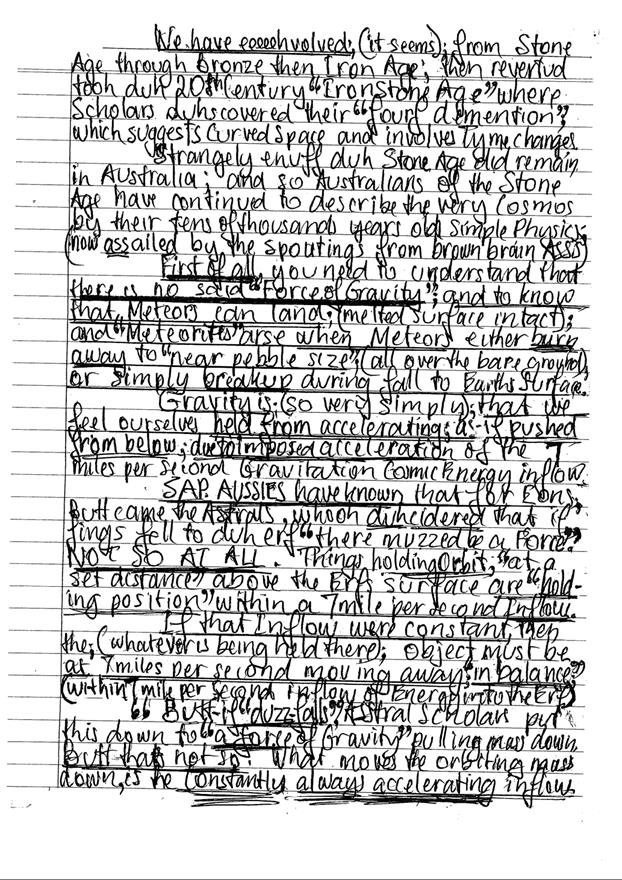 We have eeeeehvolved; (it seems); from Stone
Age through bronze then Iron Age; then revertud
tooh duh 20th Century "Iron Stone Age" where
Scholars duhscovered their "fourf demention";
which suggests Curved Space and involves Tyme changes.
Strangely enuff duh Stone Age did remain
in Australia; and so Australians of the Stone
Age have continued to describe the very Cosmos
by their tens of thousands years old simple Physics;
(now assailed by the spoutings from brown brain ASSS)
First of all, you need to understand that
there is no said "Force of Gravity"; and to know
that Meteors can land; (melted surface intact);
and "Meteorites" arse when Meteors either burn
away to "near pebble size"; (all over the bare ground),
or simply breakup during fall to Earths Surface.
Gravity is; (so very simply); that we
feel ourselves held from accelerating; as-if pushed
from below; due to imposed acceleration of the 7
miles per second Gravitation Cosmic Energy inflow.
SAP AUSSIES have known that for Eons,
Butt came the Astrals, whooh duhcidered that if
fings fell to duh erf "there muzzed be a Force".
NOT SO AT ALL. Things holding Orbit; "at a
set distance" above the Erf surface are "hold-
ing position" within a 7mile per second Inflow.
If that Inflow were constant, then
the; (whatever is being held there); object must be
at 7miles per second moving away; "in balance"
(within 7mile per second inflow of Energy into the Erf)
" Butt-if "auzz-falls", Astral Scholars put
this down to "a force of Gravity" pulling mass down,
Butt thats not so! What moves the orbiting mass
down, is the constantly always accelerating inflow.